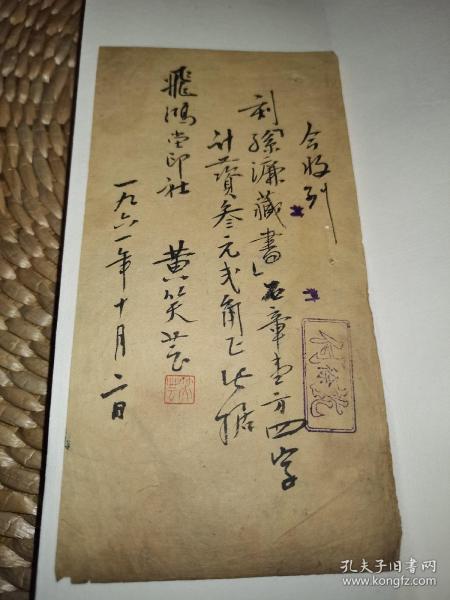 今收到
刻「孫濂藏書」石章壹方四字
计薋叁元弍角正此据
飛鴻堂印社 黄笑芸
一九六一年十月二日
孔夫子旧书网
www.kongfz.com